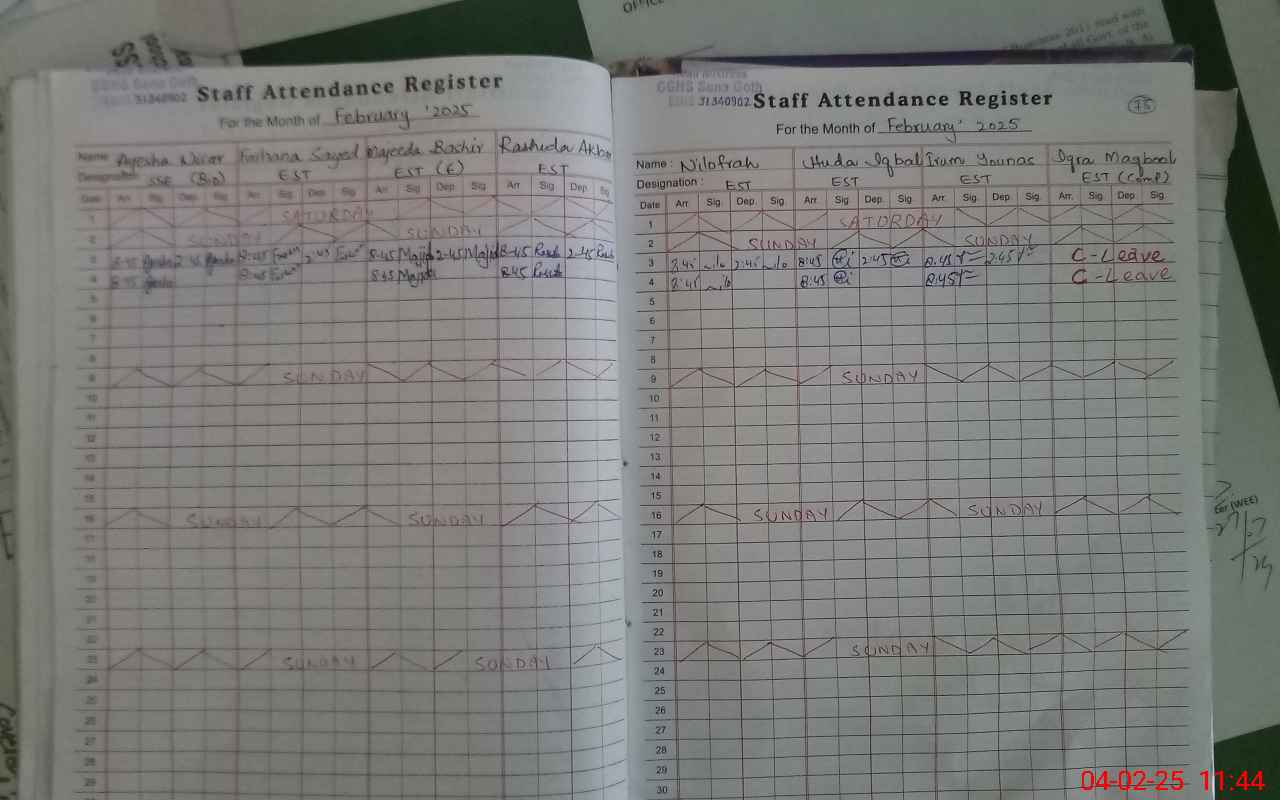 OFFICE
CGHS Sena Goth
31340902
Staff Attendance Register
For the Month of February '2025
Name : Ayesha Nisar Farhana Sayed Majeeda Bashir Rashida Akbar
Designation : SSE (Bio) EST EST (E) EST
Date Arr. Sig. Dep. Sig. Arr. Sig. Dep. Sig. Arr. Sig. Dep. Sig. Arr. Sig. Dep. Sig.
1 SATURDAY
2 SUNDAY SUNDAY
3 8:45 2:45 8:45 2:45 8:45 Majida 2:45 Majida 8:45 Rash 2:45 Rash
4 8:45 8:45 8:45 Majida 8:45 Rash
5
6
7
8
9 SUNDAY
10
11
12
13
14
15
16 SUNDAY SUNDAY
17
18
19
20
21
22
23 SUNDAY SUNDAY
24
25
26
27
28
29
CGHS Sena Goth
31340902
Staff Attendance Register
75
For the Month of February' 2025
Name : Nilofrah Huda Iqbal Irum Younas Iqra Maqbool
Designation : EST EST EST EST (Comp)
Date Arr. Sig. Dep. Sig. Arr. Sig. Dep. Sig. Arr. Sig. Dep. Sig. Arr. Sig. Dep. Sig.
1 SATURDAY
2 SUNDAY SUNDAY
3 8:45 nilo 2:45 nilo 8:45 2:45 8:45 2:45 C-Leave
4 8:45 nilo 8:45 8:45 C-Leave
5
6
7
8
9 SUNDAY
10
11
12
13
14
15
16 SUNDAY SUNDAY
17
18
19
20
21
22
23 SUNDAY
24
25
26
27
28
29
30
(WEE)
04-02-25 11:44